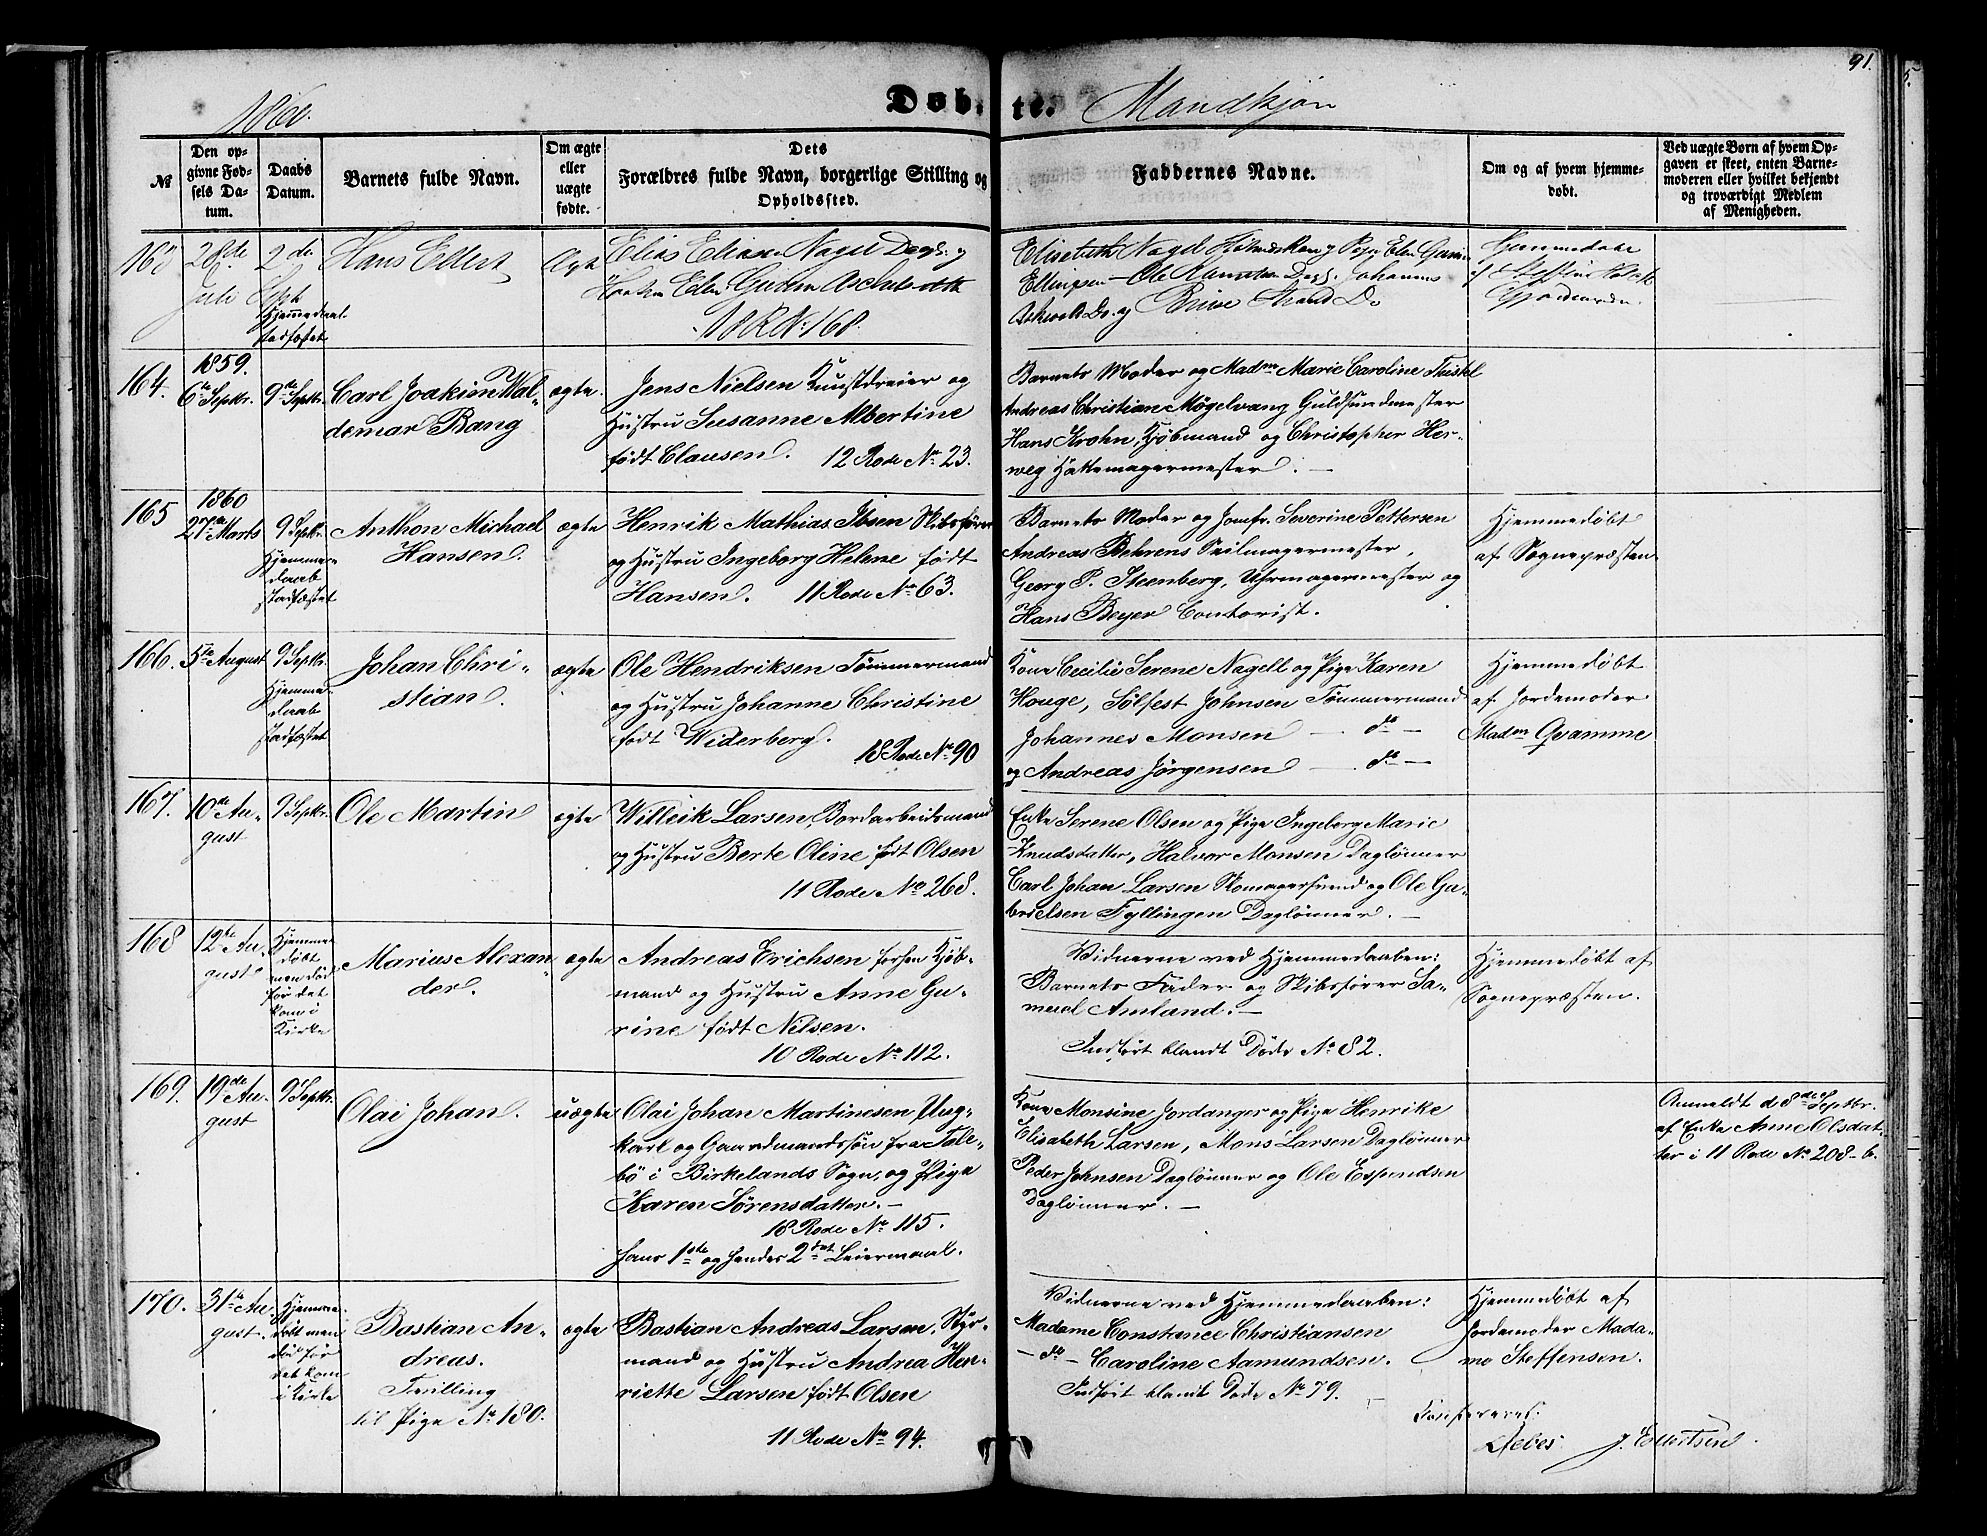 91.
1860.
Døbte. Mandkjøn
№
Den opgivne Fødsels Datum.
Daabs Datum.
Barnets fulde Navn.
Om ægte eller uægte fødte.
Dets Forældres fulde Navn, borgerlige Stilling og Opholdssted.
Faddernes Navne.
Om og af hvem hjemmedøbt.
Ved uægte Børn af hvem Opgaven er skeet, enten Barnemoderen eller hvilket bekjendt og troværdigt Medlem af Menigheden.
163
28de
Juli
2de
Sept
Hjemmedaab
stadfæstet
Hans Ellert
Ægte
Elias Nagel
18 R № 168.
Elisabeth Nagel
Ellingsen – Ole
164.
1859.
6te Septbr.
9de Septbr.
Carl Joakim Wal-
demar Bang
ægte.
Jens Nielsen Kunstdreier og
Hustru Susanne Albertine
født Clausen. 12 Rode № 23.
Barnets Moder og Madme Marie Caroline
Andreas Christian Møgelvang Guldsmedmester
Hans Krohn, Kjøbmand og Christopher Her-
weg Hattemagermester. –
165
1860
27de Marts
9 Septbr.
Hjemme-
daab
stadfæstet
Anthon Michael
Hansen.
ægte
Henrik Mathias Ibsen Skibsfører
og Hustru Ingeborg Helene født
Hansen. 11 Rode № 63.
Barnets Moder og Jomfr. Severine Pettersen
Andreas Behrens Seilmagermester,
Georg P. Steenberg, Uhrmagermester og
Hans Beyer Contorist.
Hjemmedøbt
af Sognepræsten
166.
5te August
9 Septbr.
Hjemme-
daab
stadfæstet
Johan Chri-
stian.
ægte
Ole Hendriksen Tømmermand
og Hustru Johanne Christine
født Widerberg.
18 Rode № 90
Kone Cecilie Serene Nagell og Pige Karen
Houge, Sølfest Johnsen Tømmermand
Johannes Monsen – do –
og Andreas Jørgensen – do –
Hjemmedøbt
af Jordemoder
Madm Qvamme
167.
10de Au-
gust
9 Septbr.
Ole Martin
ægte
Willeik Larsen, Bordarbeidsmand
og Hustru Berte Oline født Olsen
11 Rode № 268.
Enke Serene Olsen og Pige Ingeborg Marie
Knudsdatter, Halvor Monsen Daglønner
Carl Johan Larsen Skomagersvend og Ole Ga-
brielsen Fyllingen Daglønner. –
168
12te Au-
gust
Hjemme-
døbt
men død
før det
kom i
Kirke
Marius Alexan-
der.
ægte
Andreas Erichsen forhen Kjøb-
mand og Hustru Anne Gu-
rine født Nilsen.
10 Rode № 112.
Vidnerne ved Hjemmedaaben:
Barnets Fader og Skibsfører Sa-
muel Amland. –
Indført blandt Døde № 82.
Hjemmedøbt af
Sognepræsten.
169.
19de Au-
gust
9 Septbr.
Olai Johan.
uægte
Olai Johan Martinesen, Ung-
karl og Gaardmandssøn fra Tøle-
bø i Birkelands Sogn, og Pige
Karen Sørensdatter. –
18 Rode № 115.
Hans 1ste og hendes 2det Leiermaal.
Kone Monsine Jordanger og Pige Henrike
Elisabeth Larsen, Mons Larsen Daglønner
Peder Johnsen Daglønner og Ole Espendsen
Daglønner. –
Anmeldt d 8de Septbr.
af Enke Anne Olsdat-
ter i 11 Rode № 208-b.
170.
31te Au-
gust.
Hjemme-
døbt men
død før
det kom
i Kirke
Bastian An-
dreas.
Tvilling
til Pige № 180.
ægte
Bastian Andreas Larsen, Styr-
mand og Hustru Andrea Hen-
riette Larsen født Olsen
11 Rode № 94.
Vidnerne ved Hjemmedaaben:
Madame Constance Christiansen
– do – Caroline Aamundsen.
Indført blandt Døde № 79.
Hjemmedøbt af
Jordemoder Mada-
me Steffensen.
Confereret:
Debes. J. Ellertsen.